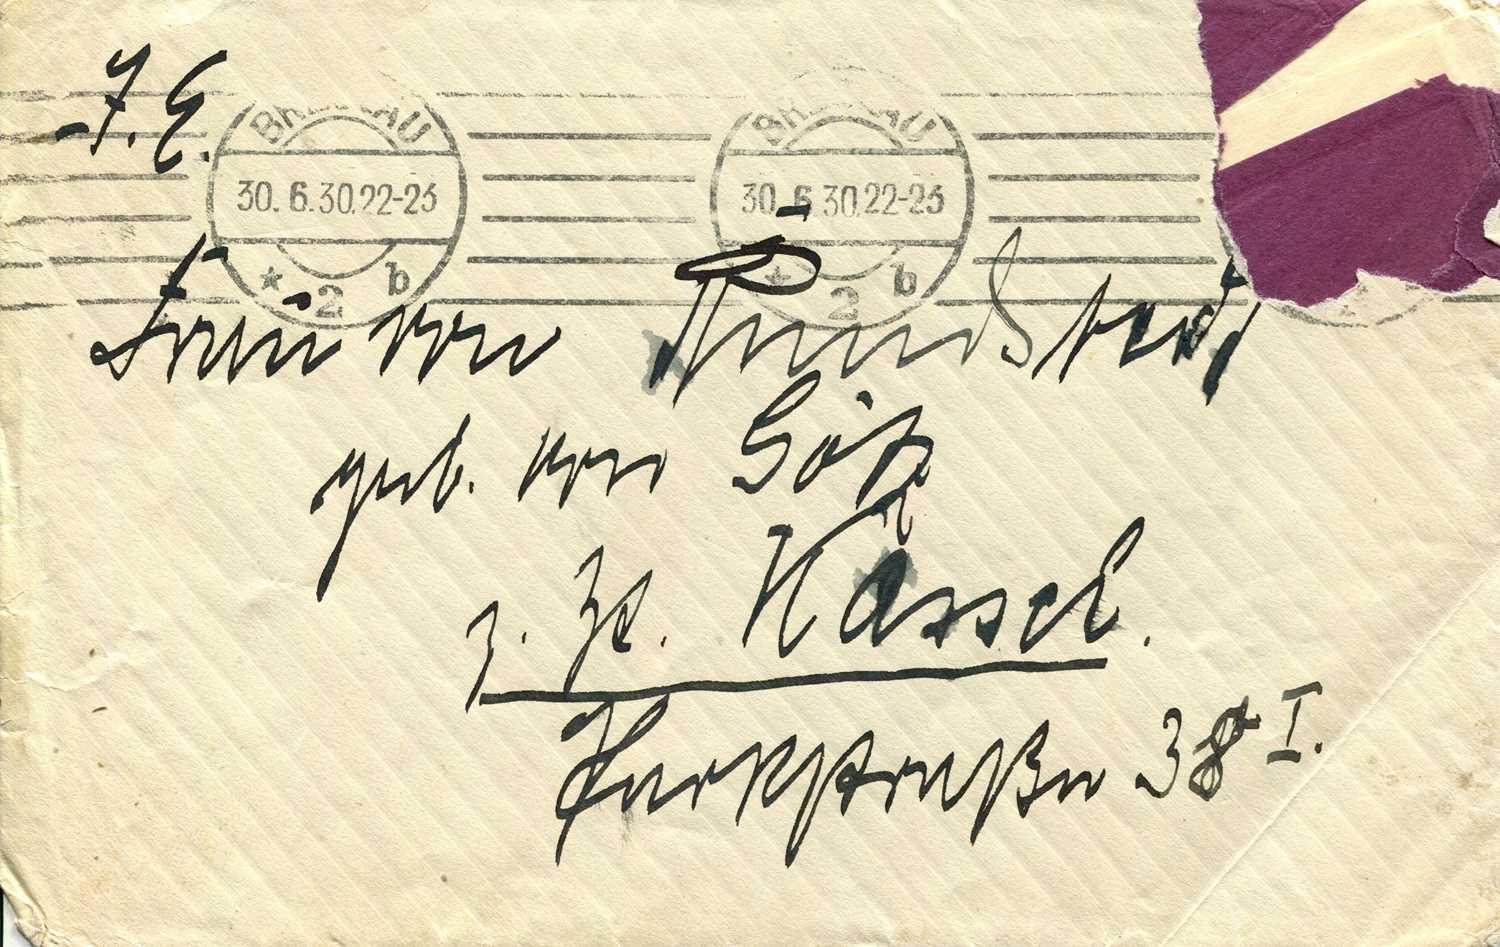 I. E.
BRESLAU
30. 6. 30. 22-23
* 2 b
BRESLAU
30. 6. 30. 22-23
* 2 b
Frau von Rundstedt
geb. von Götz
z. Zt. Kassel.
Parkstraße 38 I.